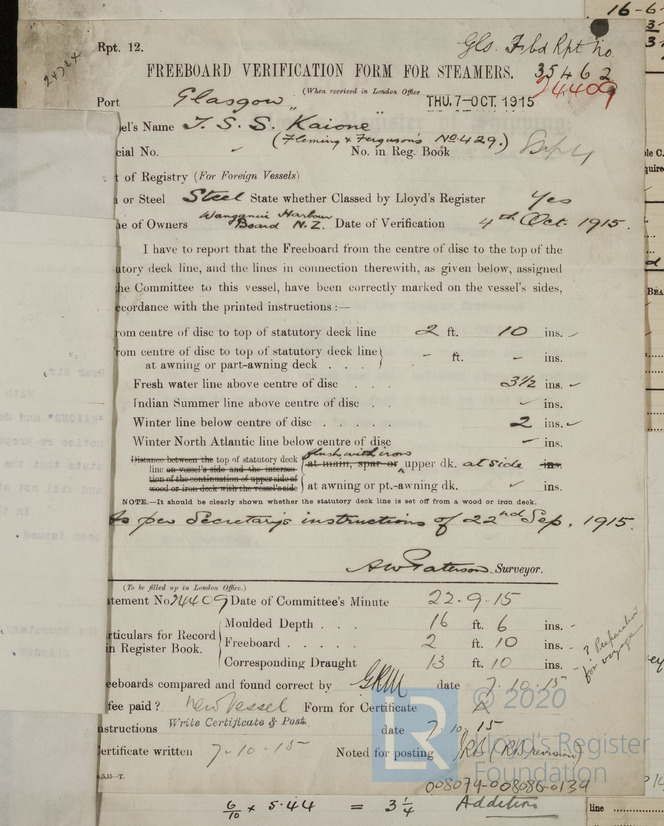 16-6-
Rpt. 12.
Gls. Fbd Rpt No
35462
24409
FREEBOARD VERIFICATION FORM FOR STEAMERS.
(When received in London Office
Port Glasgow
THU. 7-OCT. 1915
el's Name T. S. S. Kaione
(Fleming & Ferguson's No. 429.)
cial No. No. in Reg. Book
t of Registry (For Foreign Vessels)
or Steel Steel State whether Classed by Lloyd's Register Yes
e of Owners Wanganui Harbour Board N.Z. Date of Verification 4th Oct. 1915.
I have to report that the Freeboard from the centre of disc to the top of the
utory deck line, and the lines in connection therewith, as given below, assigned
he Committee to this vessel, have been correctly marked on the vessel's sides,
ccordance with the printed instructions :—
rom centre of disc to top of statutory deck line 2 ft. 10 ins.
rom centre of disc to top of statutory deck line
at awning or part-awning deck . . . - ft. - ins.
Fresh water line above centre of disc . . . 3½ ins.
Indian Summer line above centre of disc . . - ins.
Winter line below centre of disc . . . . . 2 ins.
Winter North Atlantic line below centre of disc - ins.
flush with iron
Distance between the top of statutory deck
line on vessel's side and the intersec-
tion of the continuation of upper side of
wood or iron deck with the vessel's side
at main, spar or upper dk. at side ins.
at awning or pt.-awning dk. ins.
NOTE.—It should be clearly shown whether the statutory deck line is set off from a wood or iron deck.
As per Secretary's instructions of 22nd Sep. 1915.
AW Paterson, Surveyor.
(To be filled up in London Office.)
tement No. 24409 Date of Committee's Minute 22.9.15
rticulars for Record
in Register Book.
Moulded Depth . . . 16 ft. 6 ins.
Freeboard . . . . . 2 ft. 10 ins.
Corresponding Draught 13 ft. 10 ins.
? Preparation for voyage
eeboards compared and found correct by GRM date 7.10.15
fee paid? New Vessel Form for Certificate A
nstructions Write Certificate & Post. date 7.10.15
ertificate written 7.10.15 Noted for posting
© 2020
LR
Lloyd's Register
Foundation
008074-008086-0134
6/10 × 5.44 = 3¼ Addition
line